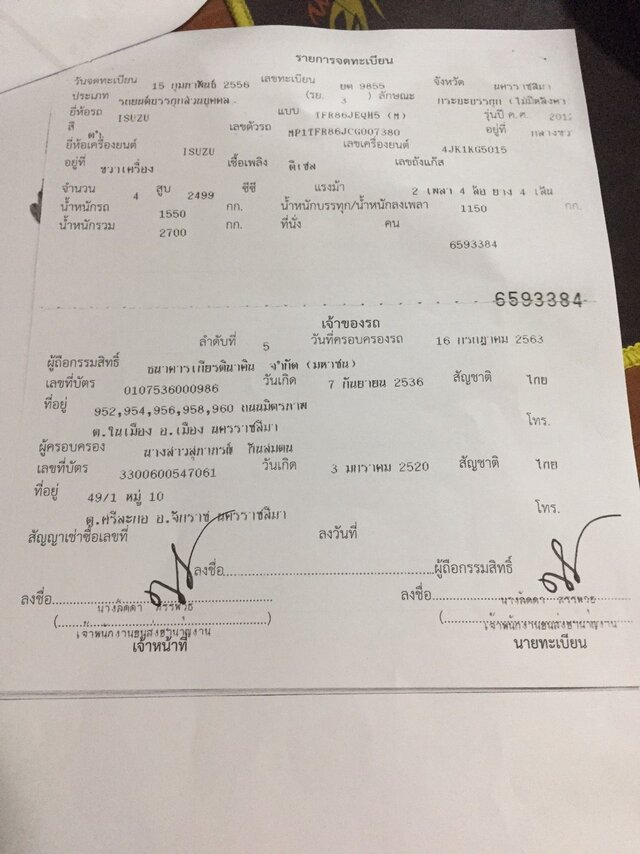 รายการจดทะเบียน
วันจดทะเบียน 15 กุมภาพันธ์ 2556 เลขทะเบียน ยต 9855 จังหวัด นครราชสีมา
ประเภท รถยนต์บรรทุกส่วนบุคคล (รย. 3 ) ลักษณะ กระบะบรรทุก (ไม่มีหลังคา
ยี่ห้อรถ ISUZU แบบ TFR86JEQH5 (M) รุ่นปี ค.ศ. 2012
สี ดำ เลขตัวรถ MP1TFR86JCG007380 อยู่ที่ กลางขวา
ยี่ห้อเครื่องยนต์ ISUZU เลขเครื่องยนต์ 4JK1KG5015
อยู่ที่ ขวาเครื่อง เชื้อเพลิง ดีเซล เลขถังแก๊ส
จำนวน 4 สูบ 2499 ซีซี แรงม้า 2 เพลา 4 ล้อ ยาง 4 เส้น
น้ำหนักรถ 1550 กก. น้ำหนักบรรทุก/น้ำหนักลงเพลา 1150 กก.
น้ำหนักรวม 2700 กก. ที่นั่ง คน
6593384
6593384
เจ้าของรถ
ลำดับที่ 5 วันที่ครอบครองรถ 16 กรกฎาคม 2563
ผู้ถือกรรมสิทธิ์ ธนาคารเกียรตินาคิน จำกัด (มหาชน)
เลขที่บัตร 0107536000986 วันเกิด 7 กันยายน 2536 สัญชาติ ไทย
ที่อยู่ 952,954,956,958,960 ถนนมิตรภาพ
ต.ในเมือง อ.เมือง นครราชสีมา โทร.
ผู้ครอบครอง นางสาวสุภาภรณ์
เลขที่บัตร 3300600547061 วันเกิด 3 มกราคม 2520 สัญชาติ ไทย
ที่อยู่ 49/1 หมู่ 10
ต.ศรีละกอ อ.จักราช นครราชสีมา โทร.
สัญญาเช่าซื้อเลขที่ ลงวันที่
ลงชื่อ ผู้ถือกรรมสิทธิ์
ลงชื่อ ลงชื่อ
นางลัดดา สรรพวุธ นางลัดดา สรรพวุธ
เจ้าพนักงานขนส่งชำนาญงาน เจ้าพนักงานขนส่งชำนาญงาน
เจ้าหน้าที่ นายทะเบียน